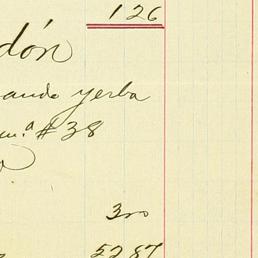 126
dón
ando yerba
m.ª # 38
300
5287